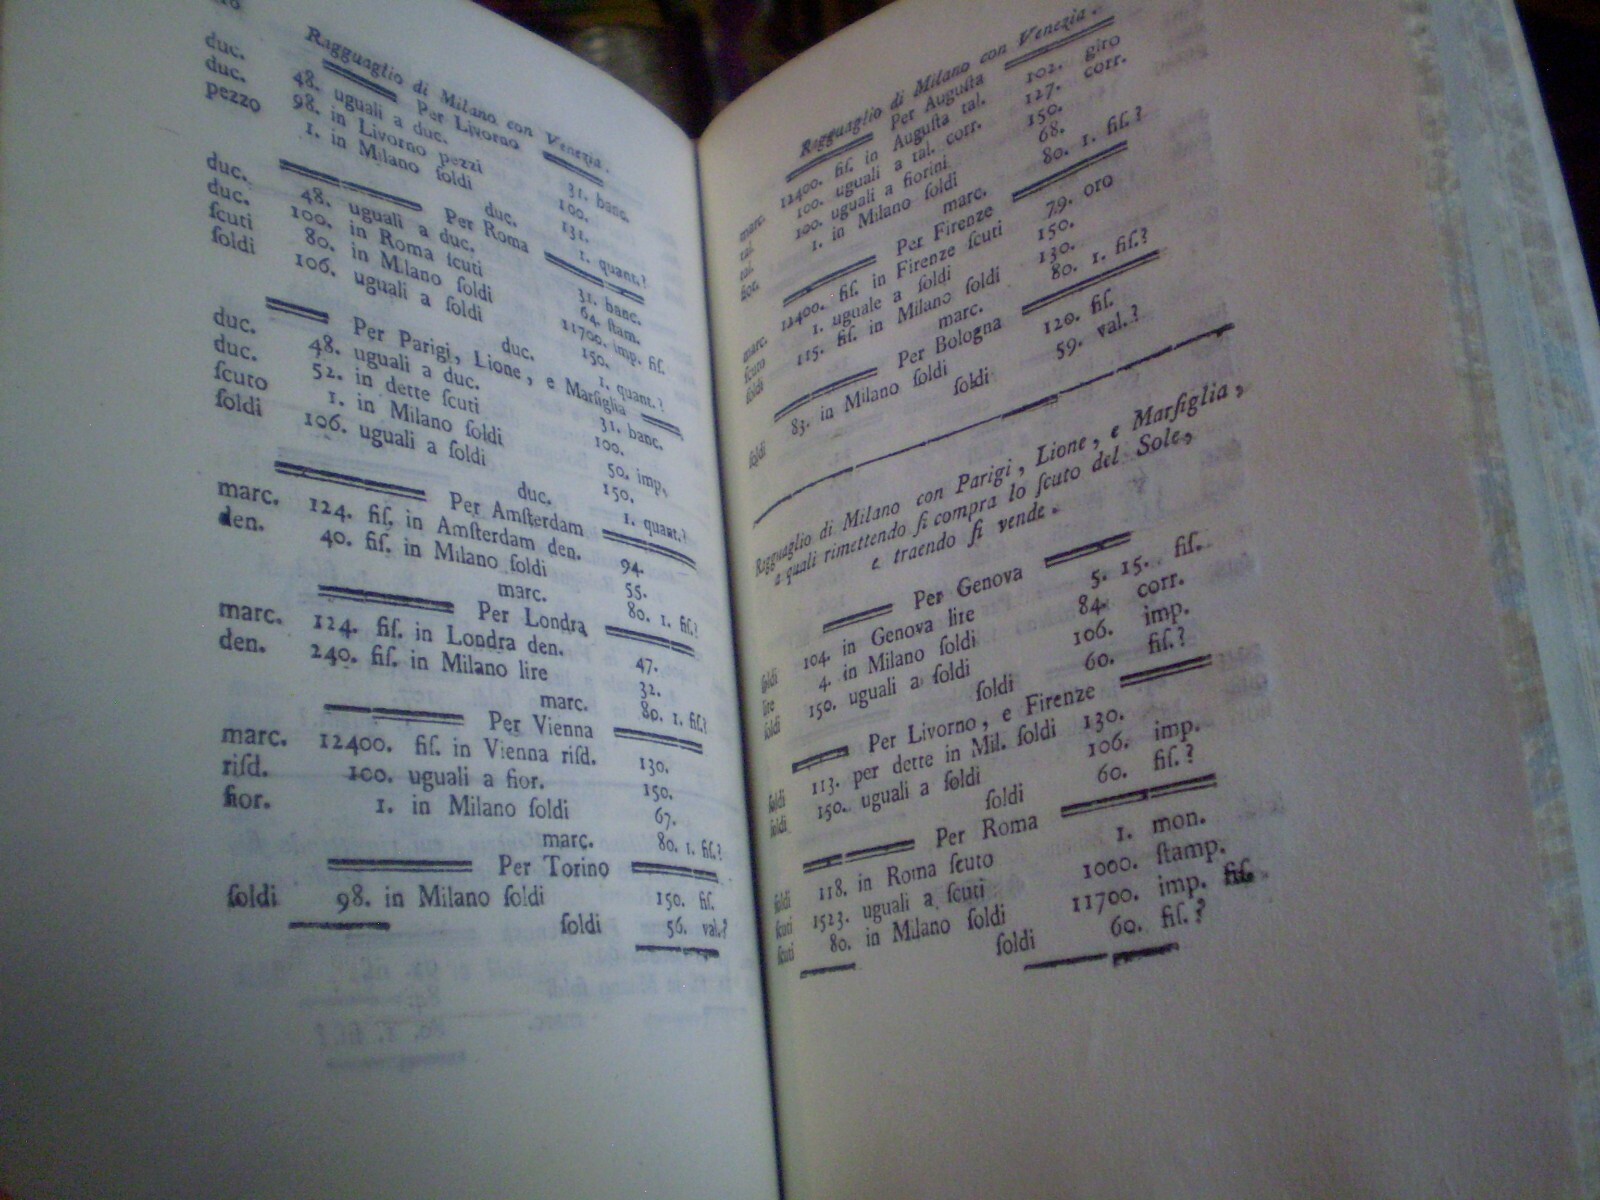 Ragguaglio di Milano con Venezia.
Per Livorno
duc. 48. uguali a duc. 31. banc.
duc. 98. in Livorno pezzi 100.
pezzo 1. in Milano ſoldi 131.
duc. 1. quant.?
Per Roma
duc. 48. uguali a duc. 31. banc.
duc. 100. in Roma ſcuti 64. ſtam.
ſcuti 80. in Milano ſoldi 11700. imp. fiſ.
ſoldi 106. uguali a ſoldi 150.
duc. 1. quant.?
Per Parigi, Lione, e Marſiglia
duc. 48. uguali a duc. 31. banc.
duc. 52. in dette ſcuti 100.
ſcuto 1. in Milano ſoldi 50. imp.
ſoldi 106. uguali a ſoldi 150.
duc. 1. quant.?
Per Amſterdam
marc. 124. fiſ. in Amſterdam den. 94.
den. 40. fiſ. in Milano ſoldi 55.
marc. 80. 1. fiſ.?
Per Londra
marc. 124. fiſ. in Londra den. 47.
den. 240. fiſ. in Milano lire 32.
marc. 80. 1. fiſ.?
Per Vienna
marc. 12400. fiſ. in Vienna riſd. 130.
riſd. 100. uguali a fior. 150.
fior. 1. in Milano ſoldi 67.
marc. 80. 1. fiſ.?
Per Torino
ſoldi 98. in Milano ſoldi 150. fiſ.
ſoldi 56. val.?
Ragguaglio di Milano con Venezia.
Per Auguſta
marc. 12400. fiſ. in Auguſta tal. 102. giro
tal. 100. uguali a tal. corr. 127. corr.
tal. 100. uguali a fiorini 150.
fior. 1. in Milano ſoldi 68.
marc. 80. 1. fiſ.?
Per Firenze
marc. 12400. fiſ. in Firenze ſcuti 79. oro
ſcuto 1. uguale a ſoldi 150.
ſoldi 115. fiſ. in Milano ſoldi 130.
marc. 80. 1. fiſ.?
Per Bologna
ſoldi 83. in Milano ſoldi 120. fiſ.
ſoldi 59. val.?
Ragguaglio di Milano con Parigi, Lione, e Marſiglia,
a quali rimettendo ſi compra lo ſcuto del Sole,
e traendo ſi vende.
Per Genova
ſoldi 104. in Genova lire 5. 15. fiſ.
lire 4. in Milano ſoldi 84. corr.
ſoldi 150. uguali a ſoldi 106. imp.
ſoldi 60. fiſ.?
Per Livorno, e Firenze
ſoldi 113. per dette in Mil. ſoldi 130.
ſoldi 150. uguali a ſoldi 106. imp.
ſoldi 60. fiſ.?
Per Roma
ſoldi 118. in Roma ſcuto 1. mon.
ſcuti 1523. uguali a ſcuti 1000. ſtamp.
ſcuti 80. in Milano ſoldi 11700. imp. fiſ.
ſoldi 60. fiſ.?